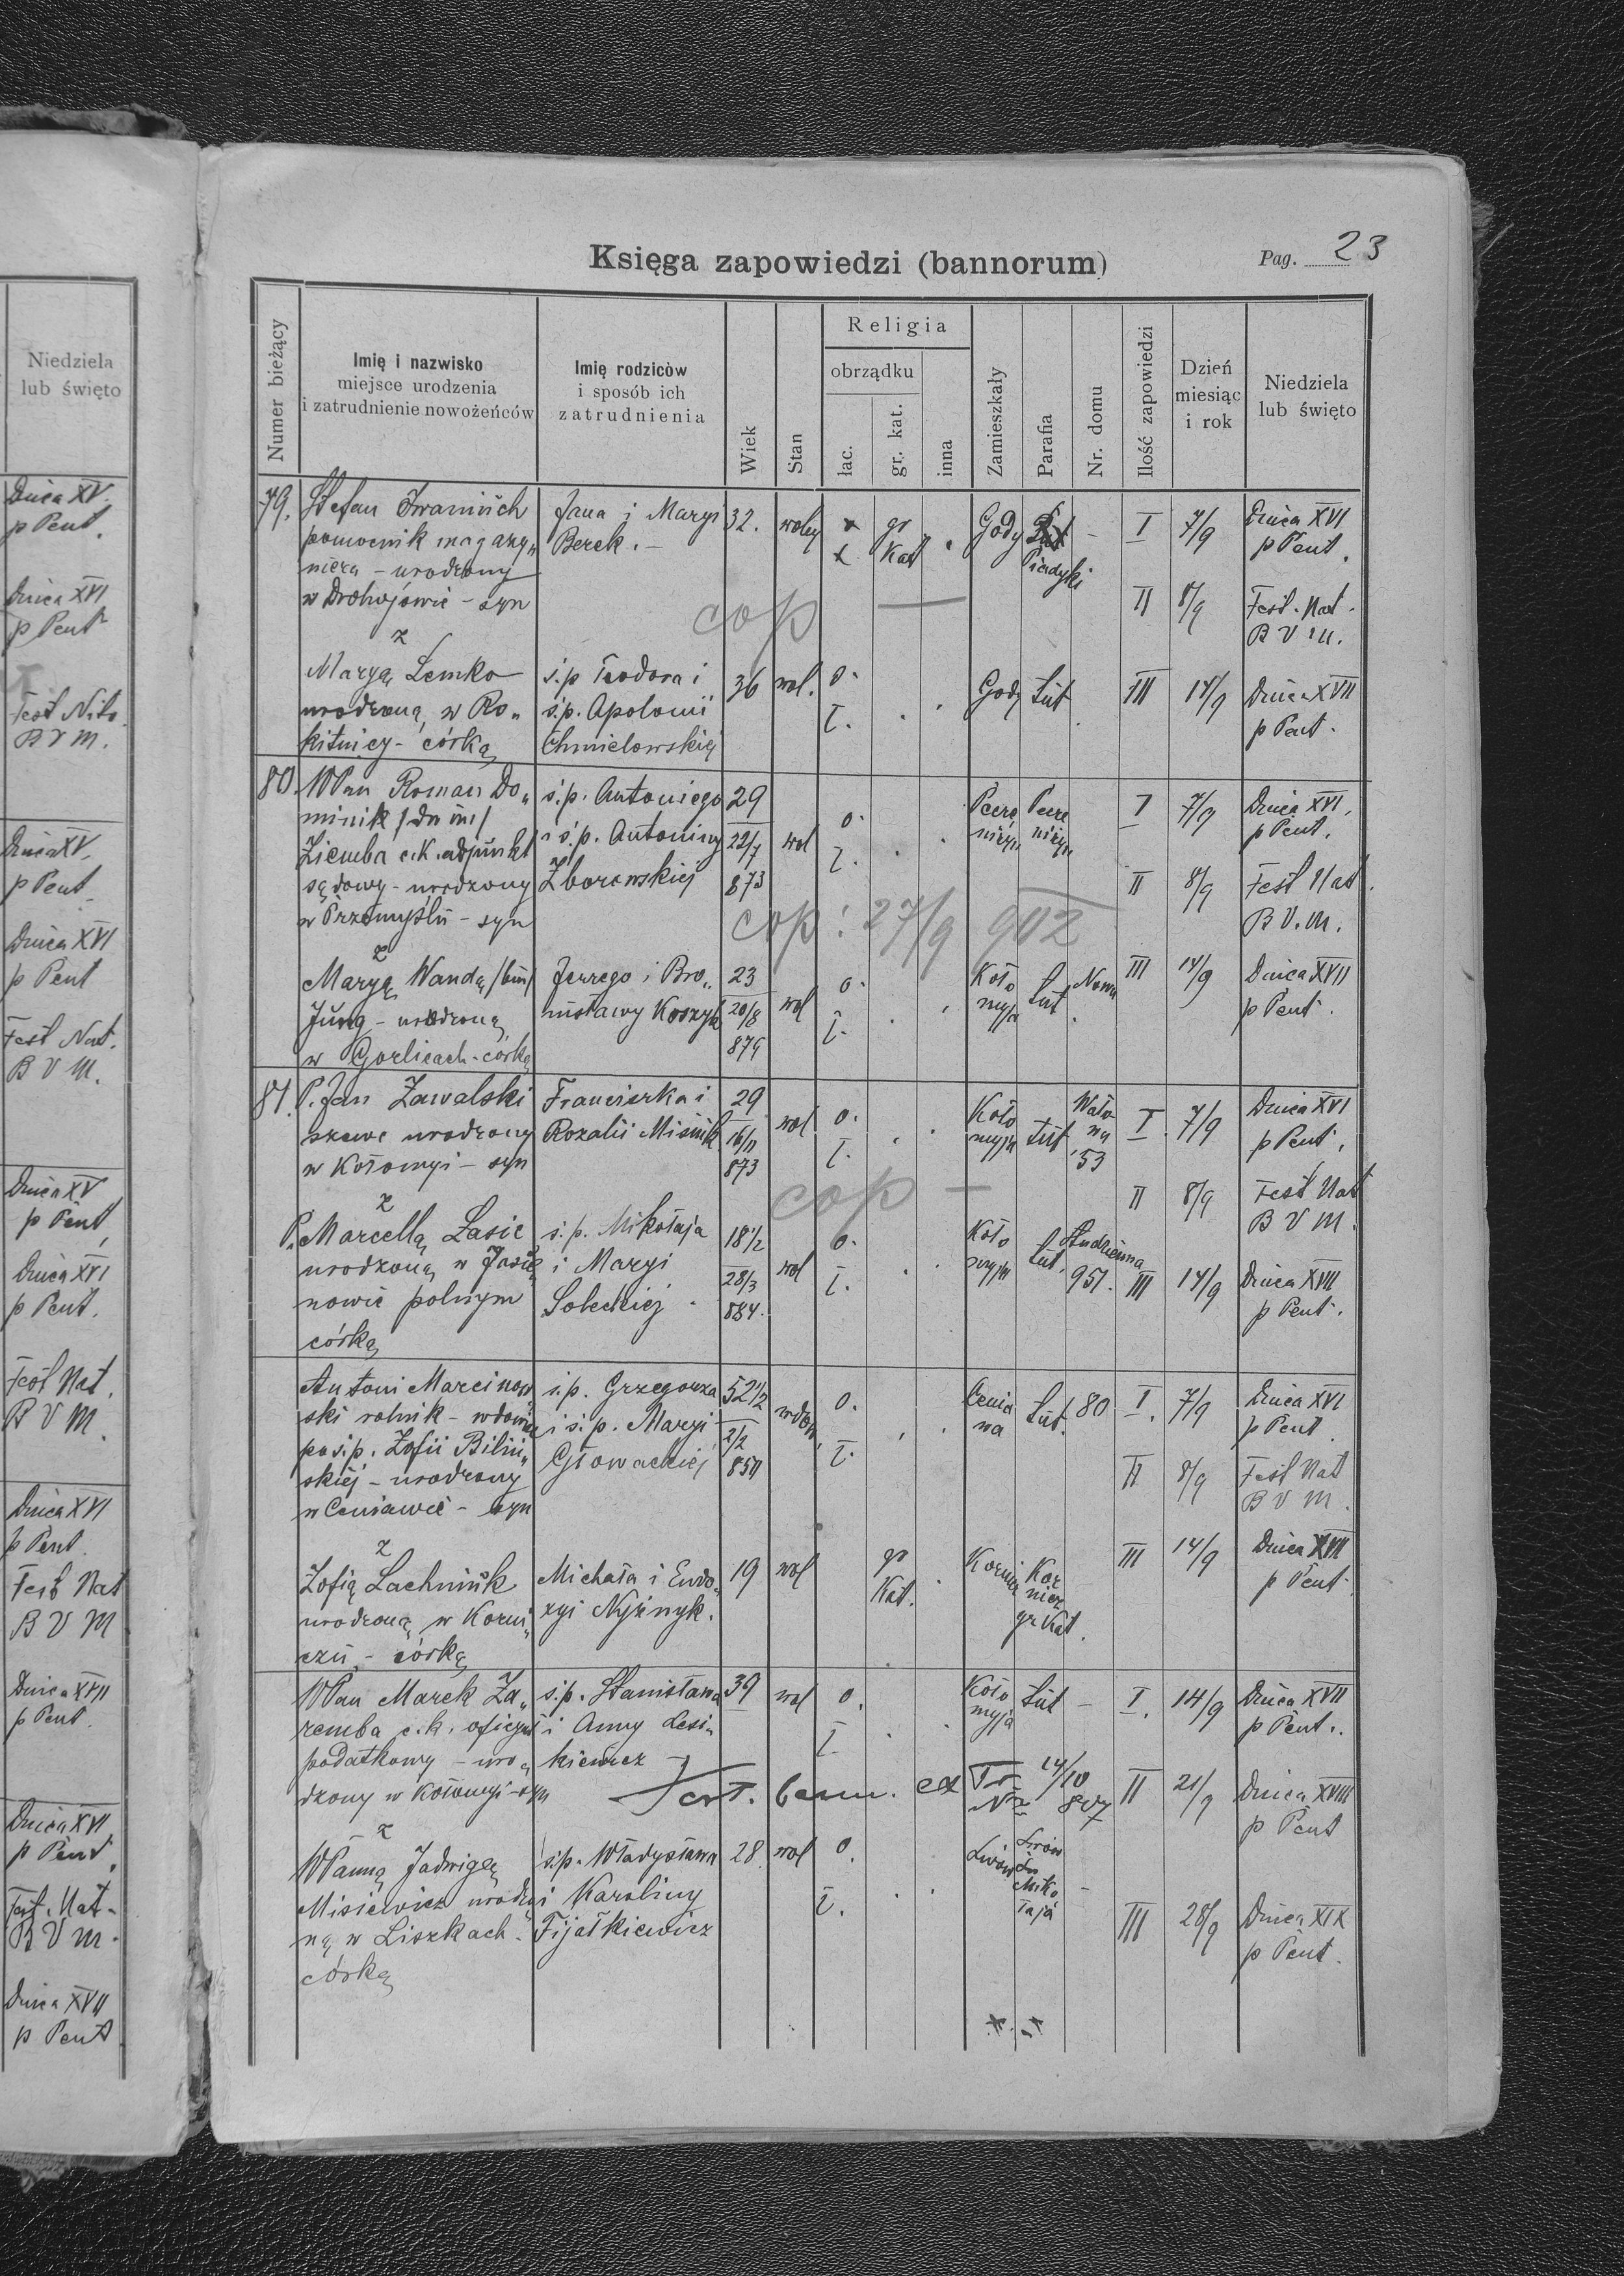 Niedziela
lub święto
Dnica XV.
p Pent.
Dnica XVI
p Pent
Fest Nat.
B V M.
Dnica XV.
p Pent
Dnica XVI
p Pent
Fest Nat.
B V M.
Dnica XV
p Pent
Dnica XVI
p Pent.
Fest Nat.
B V M.
Dnica XVI
p Pent.
Fest Nat
B V M
Dnica XVII
p Pent.
Dnica XVI
p Pent.
Fest. Nat.
B V M.
Dnica XVII
p Pent
Księga zapowiedzi (bannorum)
Pag. 23
Numer bieżący
Imię i nazwisko
miejsce urodzenia
i zatrudnienie nowożeńców
Imię rodziców
i sposób ich
zatrudnienia
Wiek
Stan
Religia
obrządku
łac.
gr. kat.
inna
Zamieszkały
Parafia
Nr. domu
Ilość zapowiedzi
Dzień
miesiąc
i rok
Niedziela
lub święto
79. Stefan Iwaniuch Jana i Maryi 32. wolny gr Gody - I 7/9 Dnica XVI
pomocnik magazy„ Berek. - Kat Piadyki p Pent.
niera - urodzony
w Drohojowie - syn II 8/9 Fest. Nat.
cop — B V M.
z
Maryą Lemko ś.p Teodora i 36 wol. o. Gody Łać III 14/9 Dnica XVII
urodzoną w Ro„ ś.p. Apolonii ł. p Pent.
kitnicy - córką Chmielowskiej
80. WPan Roman Do„ ś.p. Antoniego 29 o. Pecze Pecze I 7/9 Dnica XVI.
minik i ś.p. Antoniny 22/7 wol ł. niżyn niżyn p Pent.
Ziemba c.k. adjunkt Zborowskiej 873
sądowy - urodzony II 8/9 Fest Nat.
w Przemyślu - syn cop: 27/9 902 B V. M.
z
Maryą Wandą Jerzego i Bro„ 23 o. Koło Łać. Nowa III 14/9 Dnica XVII
Jung - urodzoną nisławy Koszyk 20/8 wol ł. myja p Pent.
w Gorlicach - córką 879
81. P. Jan Zawalski Franciszka i 29 wol o. Koło Łać Wało I 7/9 Dnica XVI
szewc urodzony Rozalii 16/11 ł. myja wa p Pent.
w Kołomyi - syn 873 53
cop — II 8/9 Fest Nat
z B V M.
P. Marcellą Lasic ś.p. Mikołaja 18 1/2 o. Koło Łać.
urodzoną w Jasie i Maryi 28/3 wol ł. myja 951. III 14/9 Dnica XVII
nowie polnym Soleckiej. 884. p Pent.
córką
Antoni Marcinow ś.p. Grzegorza 52 1/2 wdow. o. Cenia Łać. 80 I. 7/9 Dnica XVI
ski rolnik - wdowiec i ś.p. Maryi 2/2 ł. wa p Pent.
po ś.p. Zofii Biliń„ Głowackiej 850
skiej - urodzony II 8/9 Fest Nat
w Ceniawie - syn B V M.
z
Zofią Lachniuk Michała i Eudo„ 19 wol gr Kornicz Kor III 14/9 Dnica XVII
urodzoną w Korni„ xyi Nyżnyk. Kat. nicz p Pent.
czu - córką gr Kat.
WPan Marek Za„ ś.p. Stanisława 39 wol o. Koło Łać - I. 14/9 Dnica XVII
remba c.k. oficyał i Anny Lesi„ ł. myja p Pent.
podatkowy - uro„ kiewicz
dzony w Kołomyi - syn Test. bann. ex 14/10 II 21/9 Dnica XVIII
No 807 p Pent
z
WPanną Jadwigą ś.p. Władysława 28 wol o. Lwów Lwów
Misiewicz urodzo i Karoliny ł. Miko -
ną w Liszkach - Fijałkiewicz łaja III 28/9 Dnica XIX
córką p Pent.